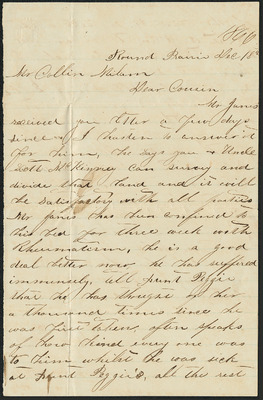 Round Prairie Dec 18th
Mr Collin Milam
Dear Cousin
Mr Janes
received you letter a few days
since & I hasten to answer it
for him, he says you & Uncle
Scott McKinney can survey and
divide that land and it will
be Satisfactory with all parties
Mr Janes has been confined to
his bed for three week with
Rheumatism, he is a good
deal better now, he has suffered
immensely, tell Aunt Peggie
that he has thought of her
a thousand times since he
was first taken, often speaks
of how kind every one was
to him whilst he was sick
at Aunt Peggie's, all the rest